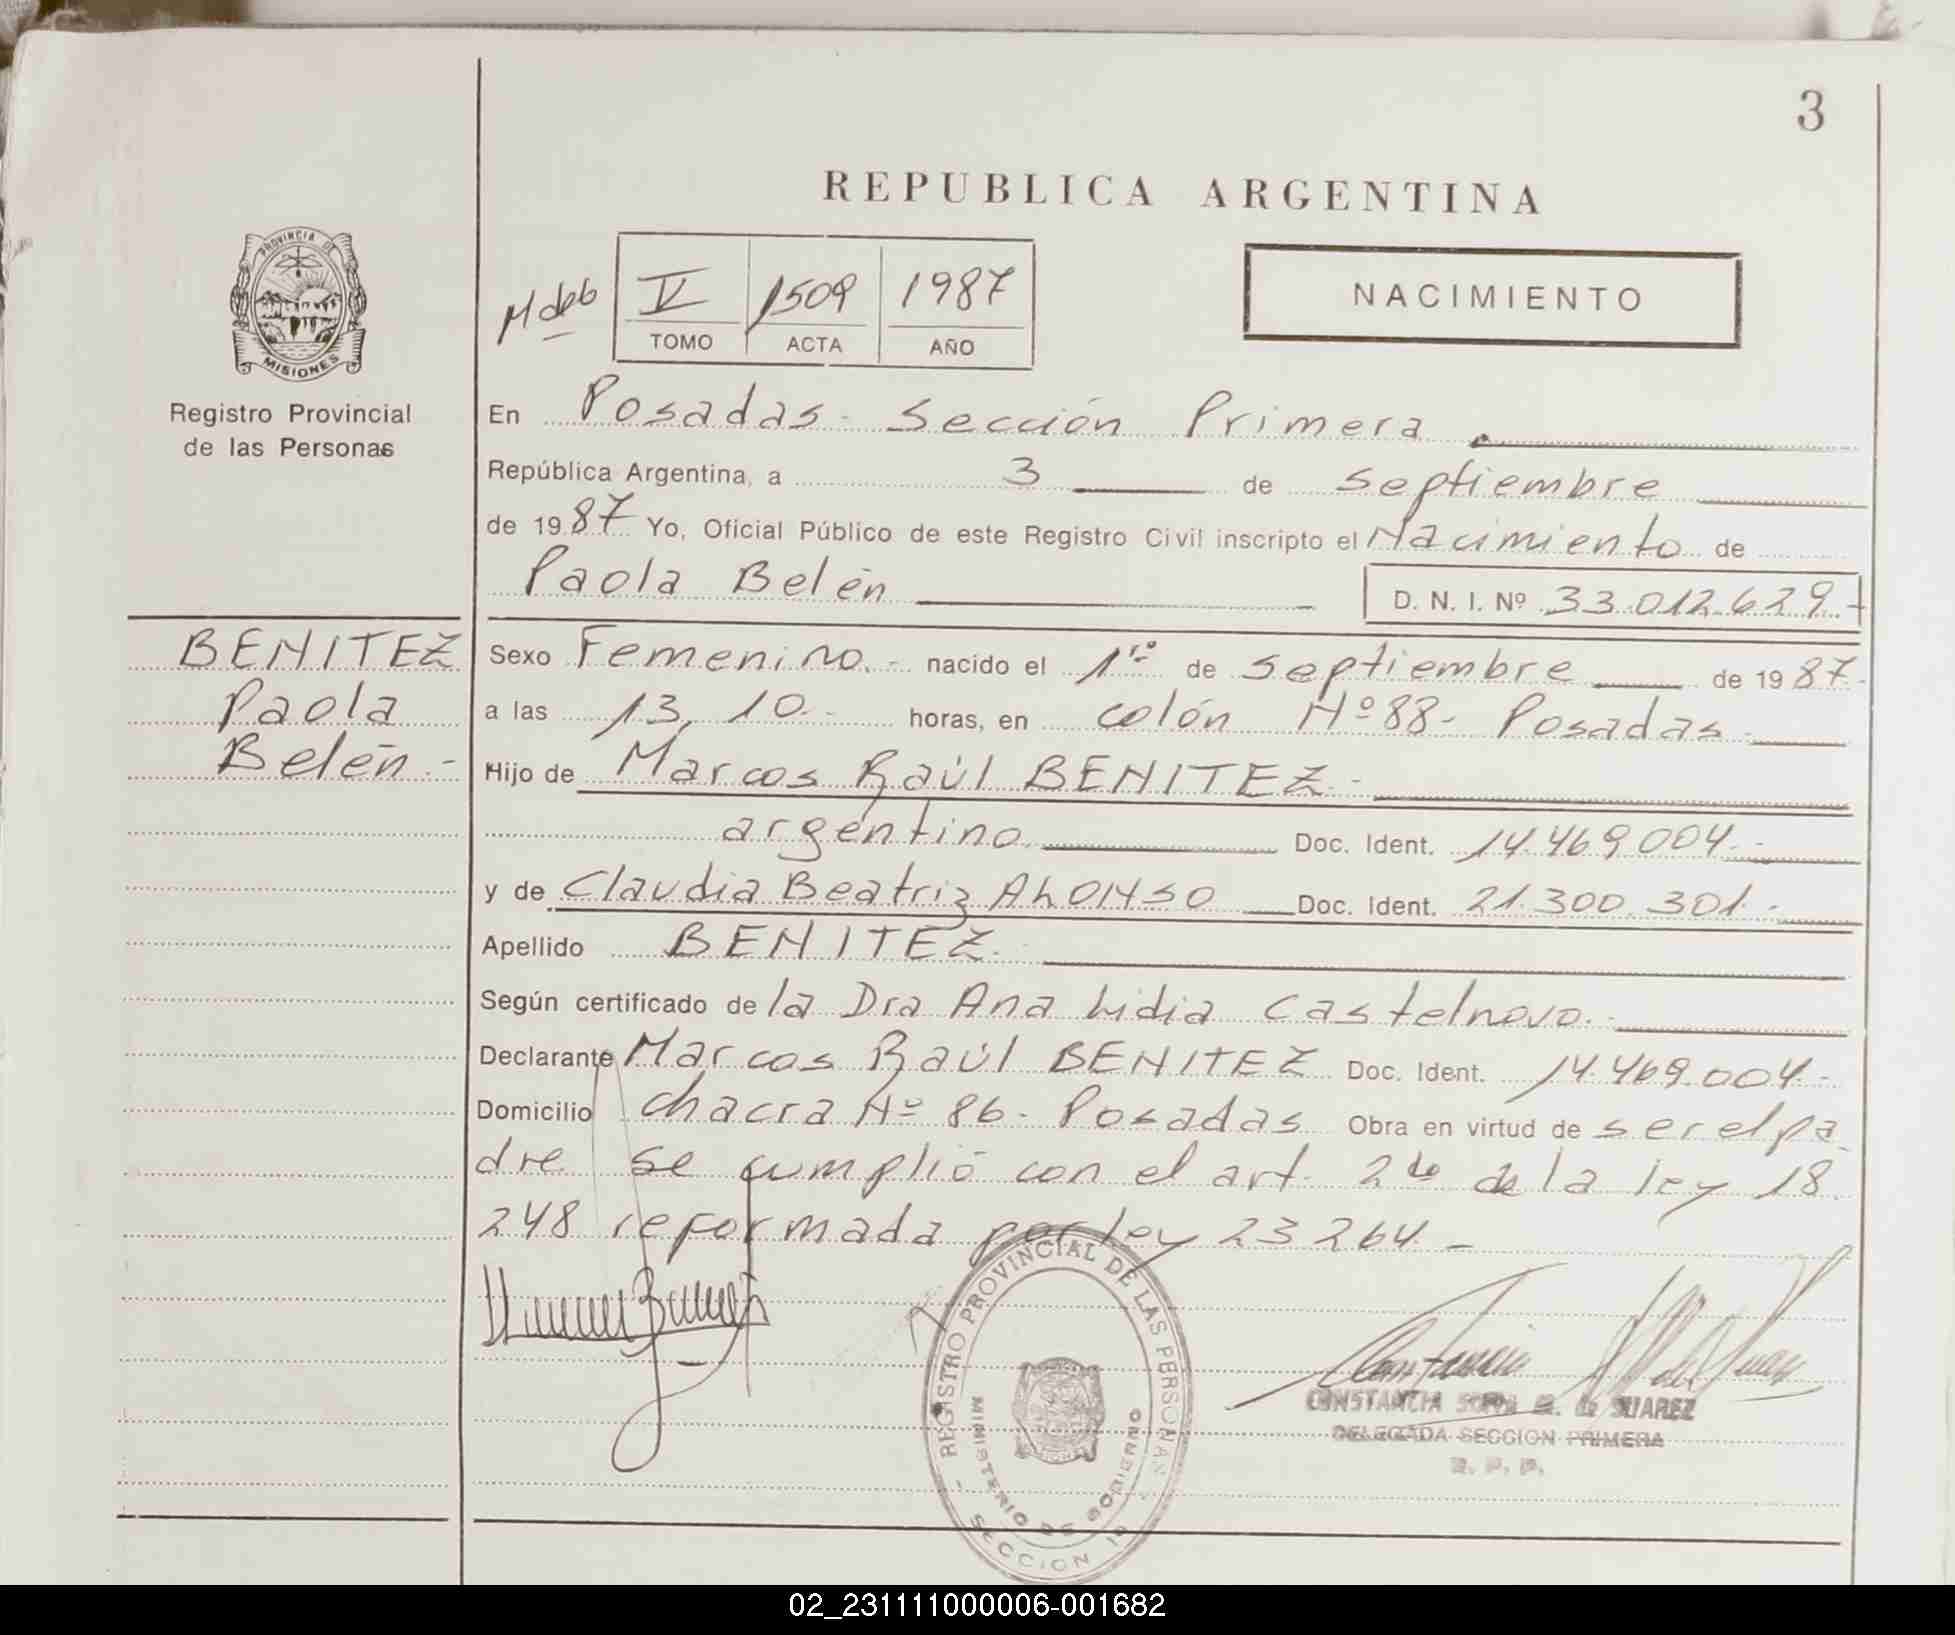 3
REPUBLICA ARGENTINA
PROVINCIA DE
MISIONES
Registro Provincial
de las Personas
V 1509 1987
TOMO ACTA AÑO
NACIMIENTO
En Posadas - Sección Primera
República Argentina, a 3 de septiembre
de 1987 Yo, Oficial Público de este Registro Civil inscripto el Nacimiento de
Paola Belén D. N. I. Nº 33.012.629.-
BENITEZ
Paola
Belén.-
Sexo Femenino.- nacido el 1ro de septiembre de 1987.
a las 13,10.- horas, en colón Nº 88- Posadas.-
Hijo de Marcos Raúl BENITEZ.-
argentino. Doc. Ident. 14.469.004.-
y de Claudia Beatriz ALONSO Doc. Ident. 21.300.301.-
Apellido BENITEZ.
Según certificado de la Dra Ana Lidia Castelnovo.-
Declarante Marcos Raúl BENITEZ Doc. Ident. 14.469.004.-
Domicilio chacra Nº 86- Posadas Obra en virtud de ser el pa
dre se cumplió con el art. 2do de la ley 18.
248 reformada por ley 23264.-
REGISTRO PROVINCIAL DE LAS PERSONAS
MINISTERIO DE GOBIERNO
SECCION 1ª
CONSTANCIA de SUAREZ
DELEGADA SECCION PRIMERA
R. P. P.
02_231111000006-001682